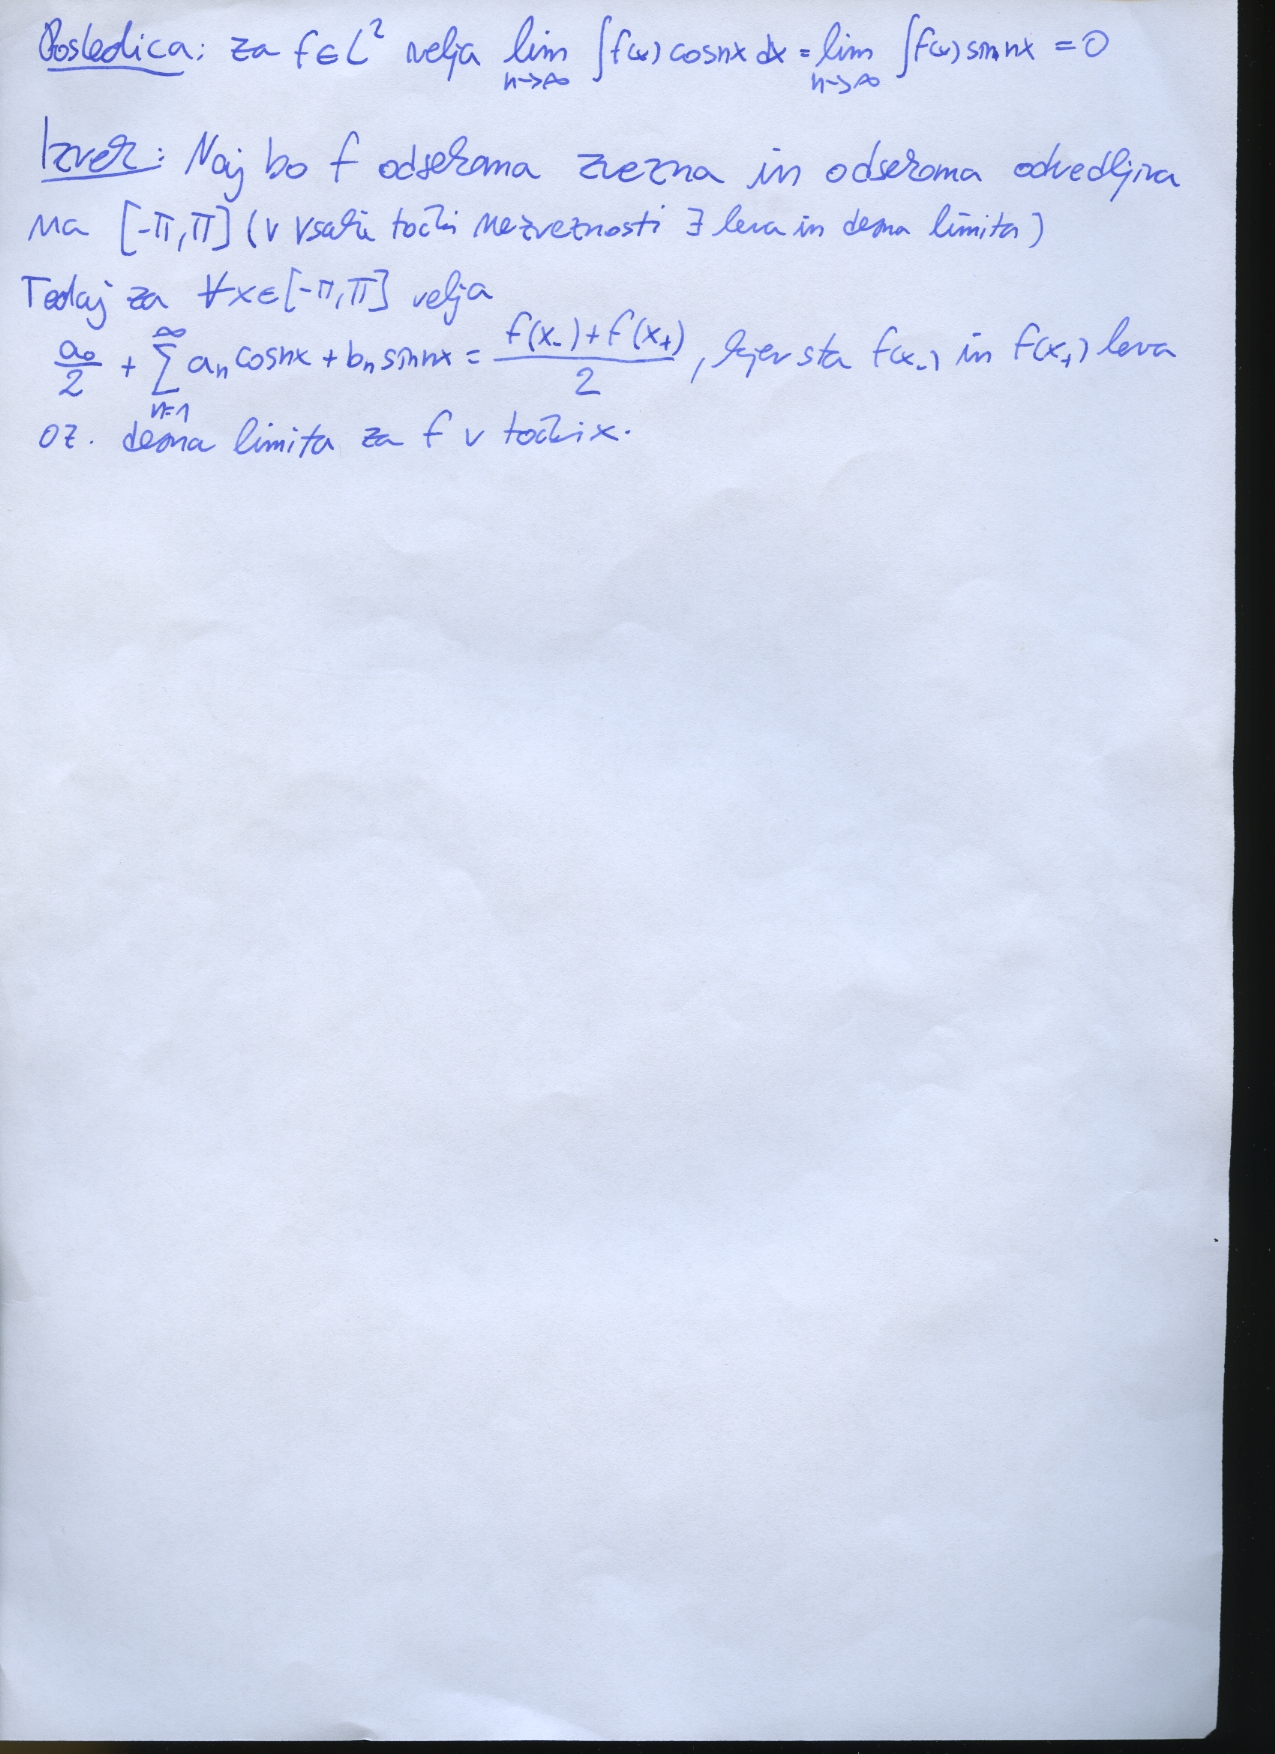 Posledica: za f∈L² velja lim_{n→∞} ∫f(x) cosnx dx = lim_{n→∞} ∫f(x) sinnx = 0
Izrek: Naj bo f odsekoma zvezna in odsekoma odvedljiva
na [-π,π] (v vsaki točki nezveznosti ∃ leva in desna limita)
Tedaj za ∀x∈[-π,π] velja
a₀/2 + ∑_{n=1}^{∞} aₙ cosnx + bₙ sinnx = (f(x₋)+f(x₊))/2, kjer sta f(x₋) in f(x₊) leva
oz. desna limita za f v točki x.